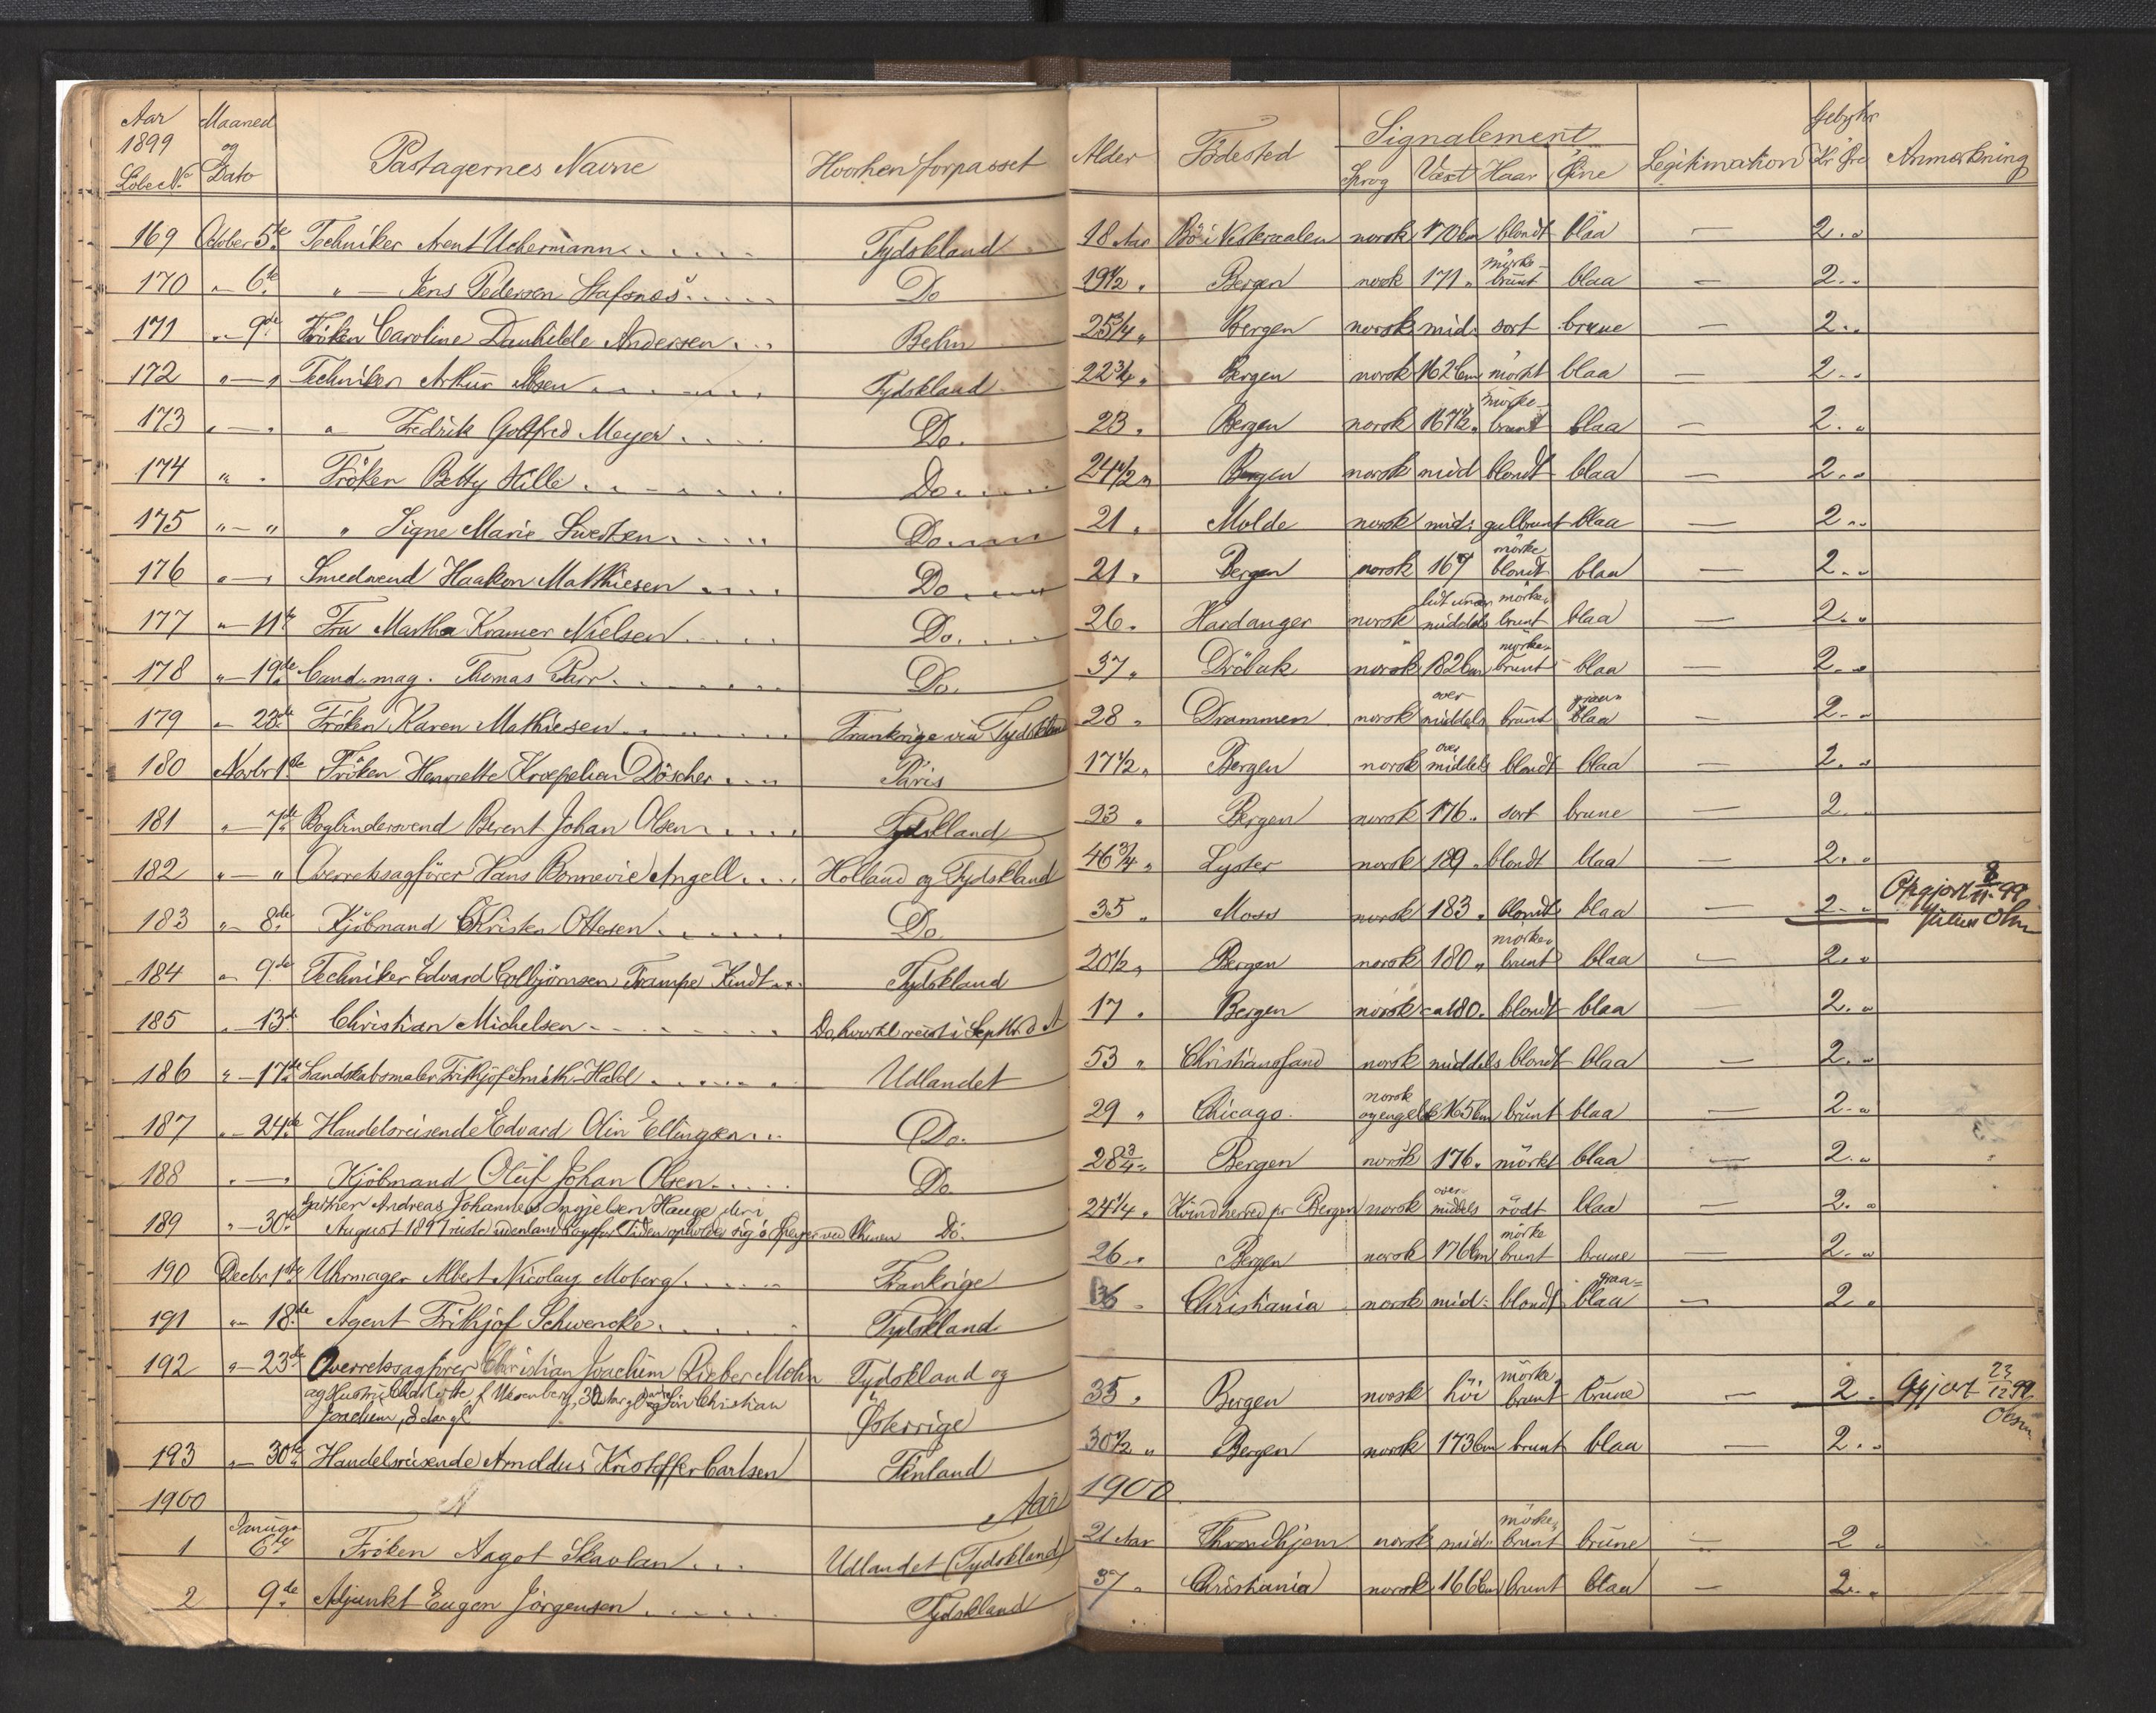 Aar 1899 Løbe No. Maaned og Dato Pastagernes Navne Hvorhen forpasset Alder Födested Signalement Sprog Vext Haar Öine Legitimation Gebyhr Kr Øre Anmerkning
169 October 5te Techniker Arent Uchermann Tydskland 18 Aar Bö i Vesteraalen norsk 170 cm blondt blaa — 2 "
170 " 6te " — Jens Pedersen Do 19 1/2 " Bergen norsk 171 " mörke- brunt blaa — 2 "
171 " 9de Fröken Caroline Andersen 25 3/4 " Bergen norsk mid: sort brune — 2 "
172 " — " Techniker Arthur Tydskland 22 3/4 " Bergen norsk 162 cm mörkt blaa — 2 "
173 " — " " Fredrik Gotfred Meyer Do. 23 " Bergen norsk 167 1/2 " mörke- brunt blaa — 2 "
174 " " Fröken Betty Hille Do 24 1/2 " Bergen norsk mid blondt blaa — 2 "
175 " — " " Signe Marie Do 21 " Molde norsk mid: gulbrunt blaa — 2 "
176 " — " Smedsvend Haakon Mathiesen Do 21 " Bergen norsk 167 mörke blondt blaa — 2 "
177 " 11te Fru Martha Kramer Nielsen Do. 26 " Hardanger norsk lidt under middels mörke- brunt blaa — 2 "
178 " 19de Cand. mag. Thomas Do. 37 " Dröbak norsk 182 cm mörke- brunt blaa — 2 "
179 " 23de Fröken Karen Mathiesen Frankrige via Tydskland 28 " Drammen norsk over middels brunt graa- blaa — 2 "
180 Novbr 1ste Fröken Henriette Kroepelien Döscher Paris 17 1/2 " Bergen norsk over middels blondt blaa — 2 "
181 " 7de Bogbindersvend Berent Johan Olsen Tydskland 23 " Bergen norsk 176 " sort brune — 2 "
182 " — " Overretssagförer Hans Bonnevie Angell Holland og Tydskland 46 3/4 " Lyster norsk 189 " blondt blaa — 2 "
183 " 8de Kjöbmand Christen Ottesen Do. 35 " Moss norsk 183 " blondt blaa — 2 " Opgjort 8/11 99
184 " 9de Techniker Edvard Colbjörnsen Trampe Kindt Tydskland 20 1/2 " Bergen norsk 180 " mörke- brunt blaa — 2 "
185 " 13de Christian Michelsen Do, hvortil reist i Septbr. d A 17 " Bergen norsk ca 180 " blondt blaa — 2 "
186 " 17de Landskabsmaler Frithjof Smith-Hald Udlandet 53 " Christiansand norsk middels blondt blaa — 2 "
187 " 24de Handelsreisende Edvard Olin Ellingsen Do. 29 " Chicago. norsk og engelsk 165 cm brunt blaa — 2 "
188 " — " Kjöbmand Oluf Johan Olsen Do 28 3/4 " Bergen norsk 176 " mörkt blaa — 2 "
189 " 30te Andreas Johannes Ingjelsen Hauge der i
August 1897 reiste udenlands og for Tiden opholder sig i Speyer ved Rhinen Do. 24 1/4 " Kvindherred pr Bergen norsk over- middels rödt blaa — 2 "
190 Decbr 1ste Uhrmager Albert Nicolay Moberg Frankrige 26 " Bergen norsk 176 cm mörke brunt brune — 2 "
191 " 18de Agent Frithjof Schwencke Tydskland 36 " Christiania norsk mid: blondt graa- blaa — 2 "
192 " 23de Overretssagförer Christian Joachim Rieber Mohn Tydskland og
og Hustru Charlotte f 32 Aar gl og Sön Christian
Joachim, Aar gl Österrige 35 " Bergen norsk höi mörke brunt brune — 2 " Opgjort 23/12 99.
193 " 30te Handelsreisende Arnoldus Kristoffer Carlsen Finland 30 1/2 " Bergen norsk 173 cm brunt blaa — 2 "
1900 Aar 1900
1 Januar 6te Fröken Aagot Skavlan Udlandet (Tydskland) 21 Aar Throndhjem norsk mid: mörke- brunt brune — 2 "
2 9de Adjunkt Eugen Jörgensen Tydskland 37 " Christiania norsk 166 cm brunt blaa — 2 "